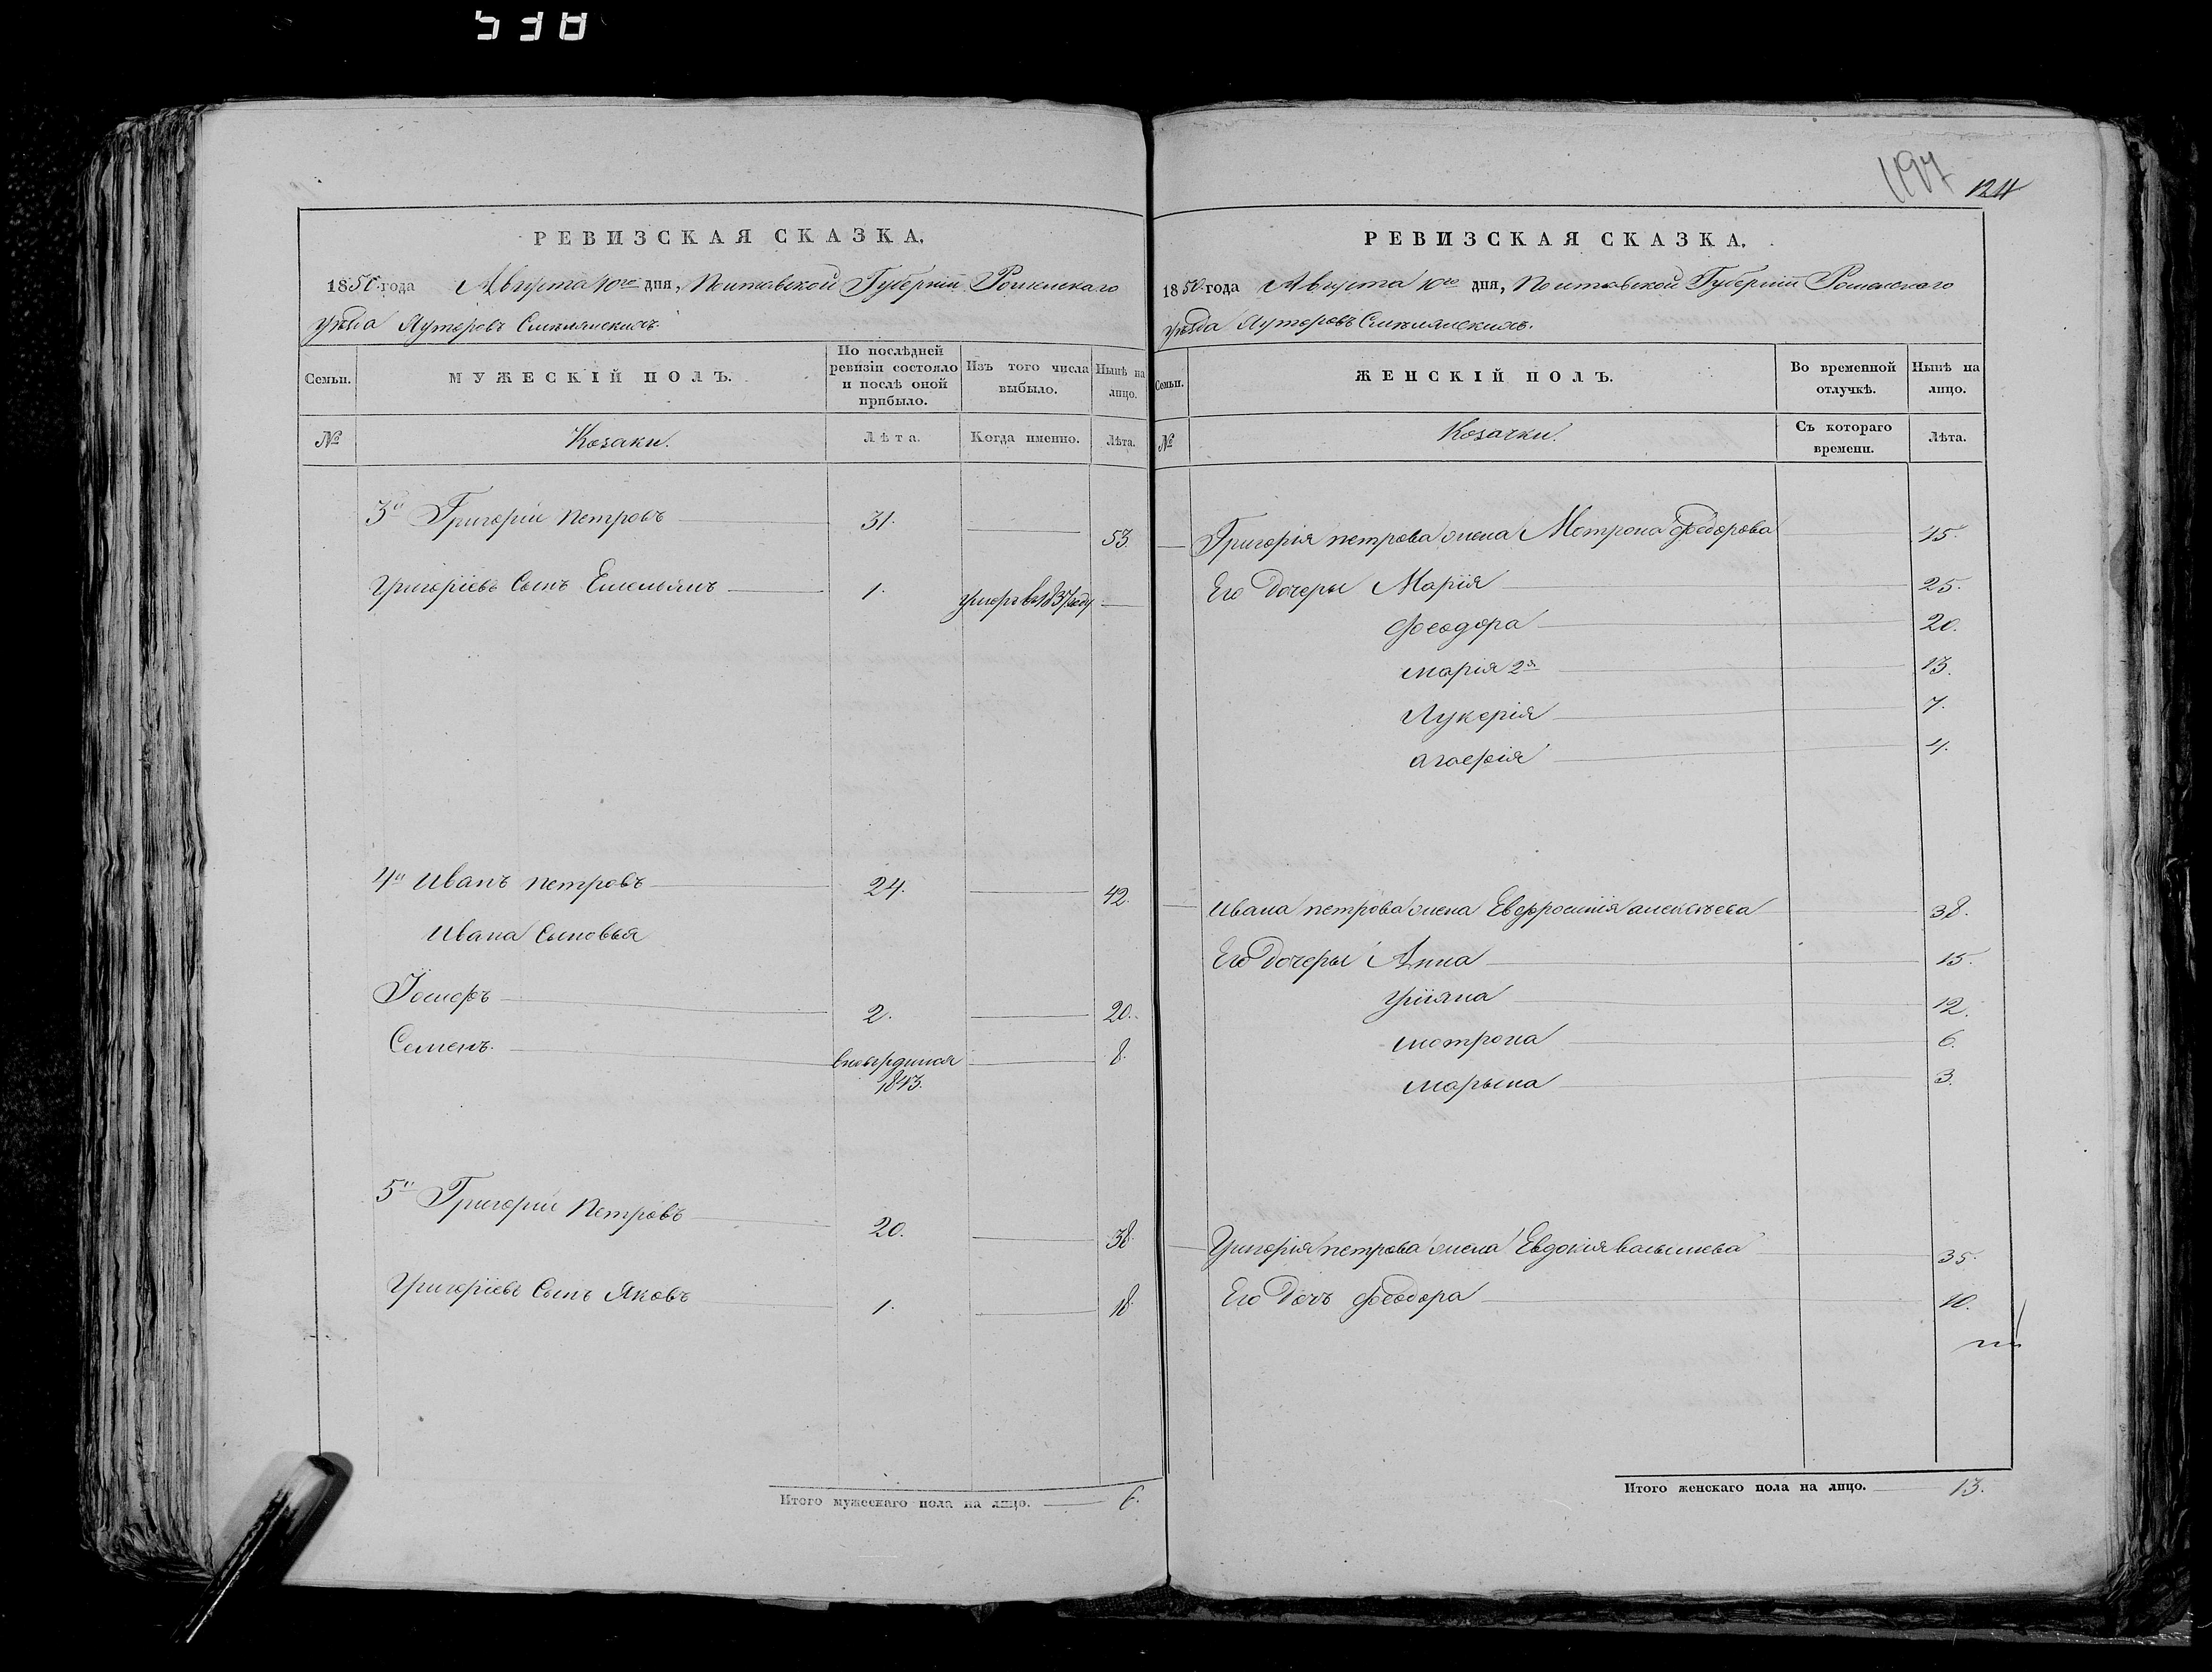 538
497 124
РЕВИЗСКАЯ СКАЗКА.
1850 года Августа 10го дня, Полтавской Губернiи Роменскаго
уѣзда Хуторовъ Смѣлянскихъ.
Семьи. МУЖЕСКІЙ ПОЛЪ. По послѣдней ревизіи состояло и послѣ оной прибыло. Изъ того числа выбыло. Нынѣ на лицо.
№ Козаки. Лѣта. Когда именно. Лѣта.
3й Григорій Петровъ 31. 53.
Григоріевъ Сынъ Емельянъ 1. умеръ въ 1837 году
4й Иванъ Петровъ 24. 42.
Ивана Сыновья
Іосифъ 2. 20.
Семенъ. 8.
1843.
5й Григорій Петровъ 20. 38
Григоріевъ Сынъ Яковъ 1. 18
Итого мужескаго пола на лицо. 6.
РЕВИЗСКАЯ СКАЗКА.
1850 года Августа 10го дня, Полтавской Губерніи Роменского
уѣзда Хуторовъ Смѣлянскихъ.
Семьи. ЖЕНСКІЙ ПОЛЪ. Во временной отлучкѣ. Нынѣ на лицо.
№ Козачки. Съ котораго времени. Лѣта.
Григорія Петрова жена Мотрона Федорова 45.
Его Дочеры Марія 25.
Феодора 20.
Марія 2я 13.
Лукерія 7.
Агафія 4.
Ивана Петрова жена Евфросинія Алексѣева 38.
Его Дочеры Анна 15.
Уліяна 12.
Мотрона 6.
Марьяна 3.
Григорія Петрова жена Евдокія Васильева 35.
Его Дочь Феодора 10.
Итого женскаго пола на лицо. 13.